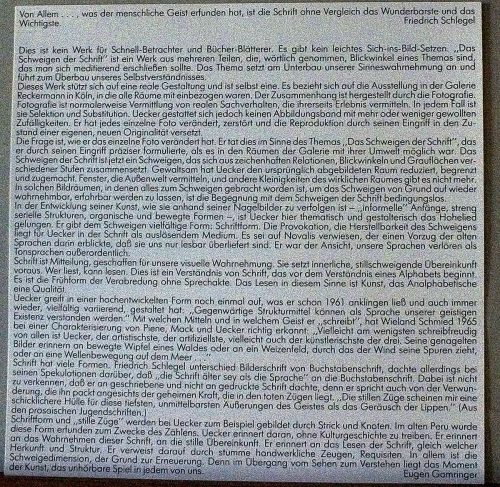 Von Allem . . . , was der menschliche Geist erfunden hat, ist die Schrift ohne Vergleich das Wunderbarste und das
Wichtigste. Friedrich Schlegel
Dies ist kein Werk für Schnell-Betrachter und Bücher-Blätterer. Es gibt kein leichtes Sich-ins-Bild-Setzen. „Das
Schweigen der Schrift" ist ein Werk aus mehreren Teilen, die, wörtlich genommen, Blickwinkel eines Themas sind,
das man sich meditierend erschließen sollte. Das Thema setzt am Unterbau unserer Sinneswahrnehmung an und
führt zum Überbau unseres Selbstverständnisses.
Dieses Werk stützt sich auf eine reale Gestaltung und ist selbst eine. Es bezieht sich auf die Ausstellung in der Galerie
Reckermann in Köln, in die alle Räume mit einbezogen waren. Der Zusammenhang ist hergestellt durch die Fotografie.
Fotografie ist normalerweise Vermittlung von realen Sachverhalten, die ihrerseits Erlebnis vermitteln. In jedem Fall ist
sie Selektion und Substitution. Uecker gestattet sich jedoch keinen Abbildungsband mit mehr oder weniger gewollten
Zufälligkeiten. Er hat jedes einzelne Foto verändert, zerstört und die Reproduktion durch seinen Eingriff in den Zu-
stand einer eigenen, neuen Originalität versetzt.
Die Frage ist, wie er das einzelne Foto verändert hat. Er tat dies im Sinne des Themas „Das Schweigen der Schrift", das
er durch seinen Eingriff präziser formulierte, als es in den Räumen der Galerie mit ihrer Umwelt möglich war. Das
Schweigen der Schrift ist jetzt ein Schweigen, das sich aus zeichenhaften Relationen, Blickwinkeln und Grauflächen ver-
schiedener Stufen zusammensetzt. Gewaltsam hat Uecker den ursprünglich abgebildeten Raum reduziert, begrenzt
und zugemacht. Fenster, die Außenwelt vermitteln, und andere Kleinigkeiten des wirklichen Raumes gibt es nicht mehr.
In solchen Bildräumen, in denen alles zum Schweigen gebracht worden ist, um das Schweigen von Grund auf wieder
wahrnehmbar, erfahrbar werden zu lassen, ist die Begegnung mit dem Schweigen der Schrift bedingungslos.
In der Entwicklung seiner Kunst, wie sie anhand seiner Nagelbilder zu verfolgen ist – „informelle" Anfänge, streng
serielle Strukturen, organische und bewegte Formen –, ist Uecker hier thematisch und gestalterisch das Hohelied
gelungen. Er gibt dem Schweigen vielfältige Form: Schriftform. Die Provokation, die Herstellbarkeit des Schweigens
liegt für Uecker in der Schrift als auslösendem Medium. Es sei auf Novalis verwiesen, der einen Vorzug der alten
Sprachen darin erblickte, daß sie uns nur lesbar überliefert sind. Er war der Ansicht, unsere Sprachen verlören als
Tonsprachen außerordentlich.
Schrift ist Mitteilung, geschaffen für unsere visuelle Wahrnehmung. Sie setzt innerliche, stillschweigende Übereinkunft
voraus. Wer liest, kann lesen. Dies ist ein Verständnis von Schrift, das vor dem Verständnis eines Alphabets beginnt.
Es ist die Frühform der Verabredung ohne Sprechakte. Das Lesen in diesem Sinne ist Kunst, das Analphabetische
eine Qualität.
Uecker greift in einer hochentwickelten Form noch einmal auf, was er schon 1961 anklingen ließ und auch immer
wieder, vielfältig variierend, gestaltet hat: „Gegenwärtige Strukturmittel können als Sprache unserer geistigen
Existenz verstanden werden." Mit welchen Mitteln und in welchem Geist er „schreibt", hat Wieland Schmied 1965
bei einer Charakterisierung von Piene, Mack und Uecker richtig erkannt: „Vielleicht am wenigsten schreibfreudig
von allen ist Uecker, der artistischste, der artifiziellste, vielleicht auch der künstlerischste der drei. Seine genagelten
Bilder erinnern an bewegte Wipfel eines Waldes oder an ein Weizenfeld, durch das der Wind seine Spuren zieht,
oder an eine Wellenbewegung auf dem Meer . . ."
Schrift hat viele Formen. Friedrich Schlegel unterschied Bilderschrift von Buchstabenschrift, dachte allerdings bei
seinen Spekulationen darüber, daß „die Schrift älter sey als die Sprache" an die Buchstabenschrift. Dabei ist nicht
zu verkennen, daß er an geschriebene und nicht an gedruckte Schrift dachte, denn er spricht auch von der Verwun-
derung, die ihn packt angesichts der geheimen Kraft, die in den toten Zügen liegt. „Die stillen Züge scheinen mir eine
schicklichere Hülle für diese tiefsten, unmittelbarsten Äußerungen des Geistes als das Geräusch der Lippen." [Aus
den prosaischen Jugendschriften.]
Schriftform und „stille Züge" werden bei Uecker zum Beispiel gebildet durch Strick und Knoten. Im alten Peru wurde
diese Form erfunden zum Zwecke des Zählens. Uecker erinnert daran, ohne Kulturgeschichte zu treiben. Er erinnert
an das Wahrnehmen dieser Schrift, an die stille Übereinkunft. Er erinnert an das Lesen der Schrift, gleich welcher
Herkunft und Struktur. Er verweist darauf durch stumme handwerkliche Zeugen, Requisiten. In allem ist die
Schweigedimension, der Grund zur Erneuerung. Denn im Übergang vom Sehen zum Verstehen liegt das Moment
der Kunst, das unhörbare Spiel in jedem von uns. Eugen Gomringer